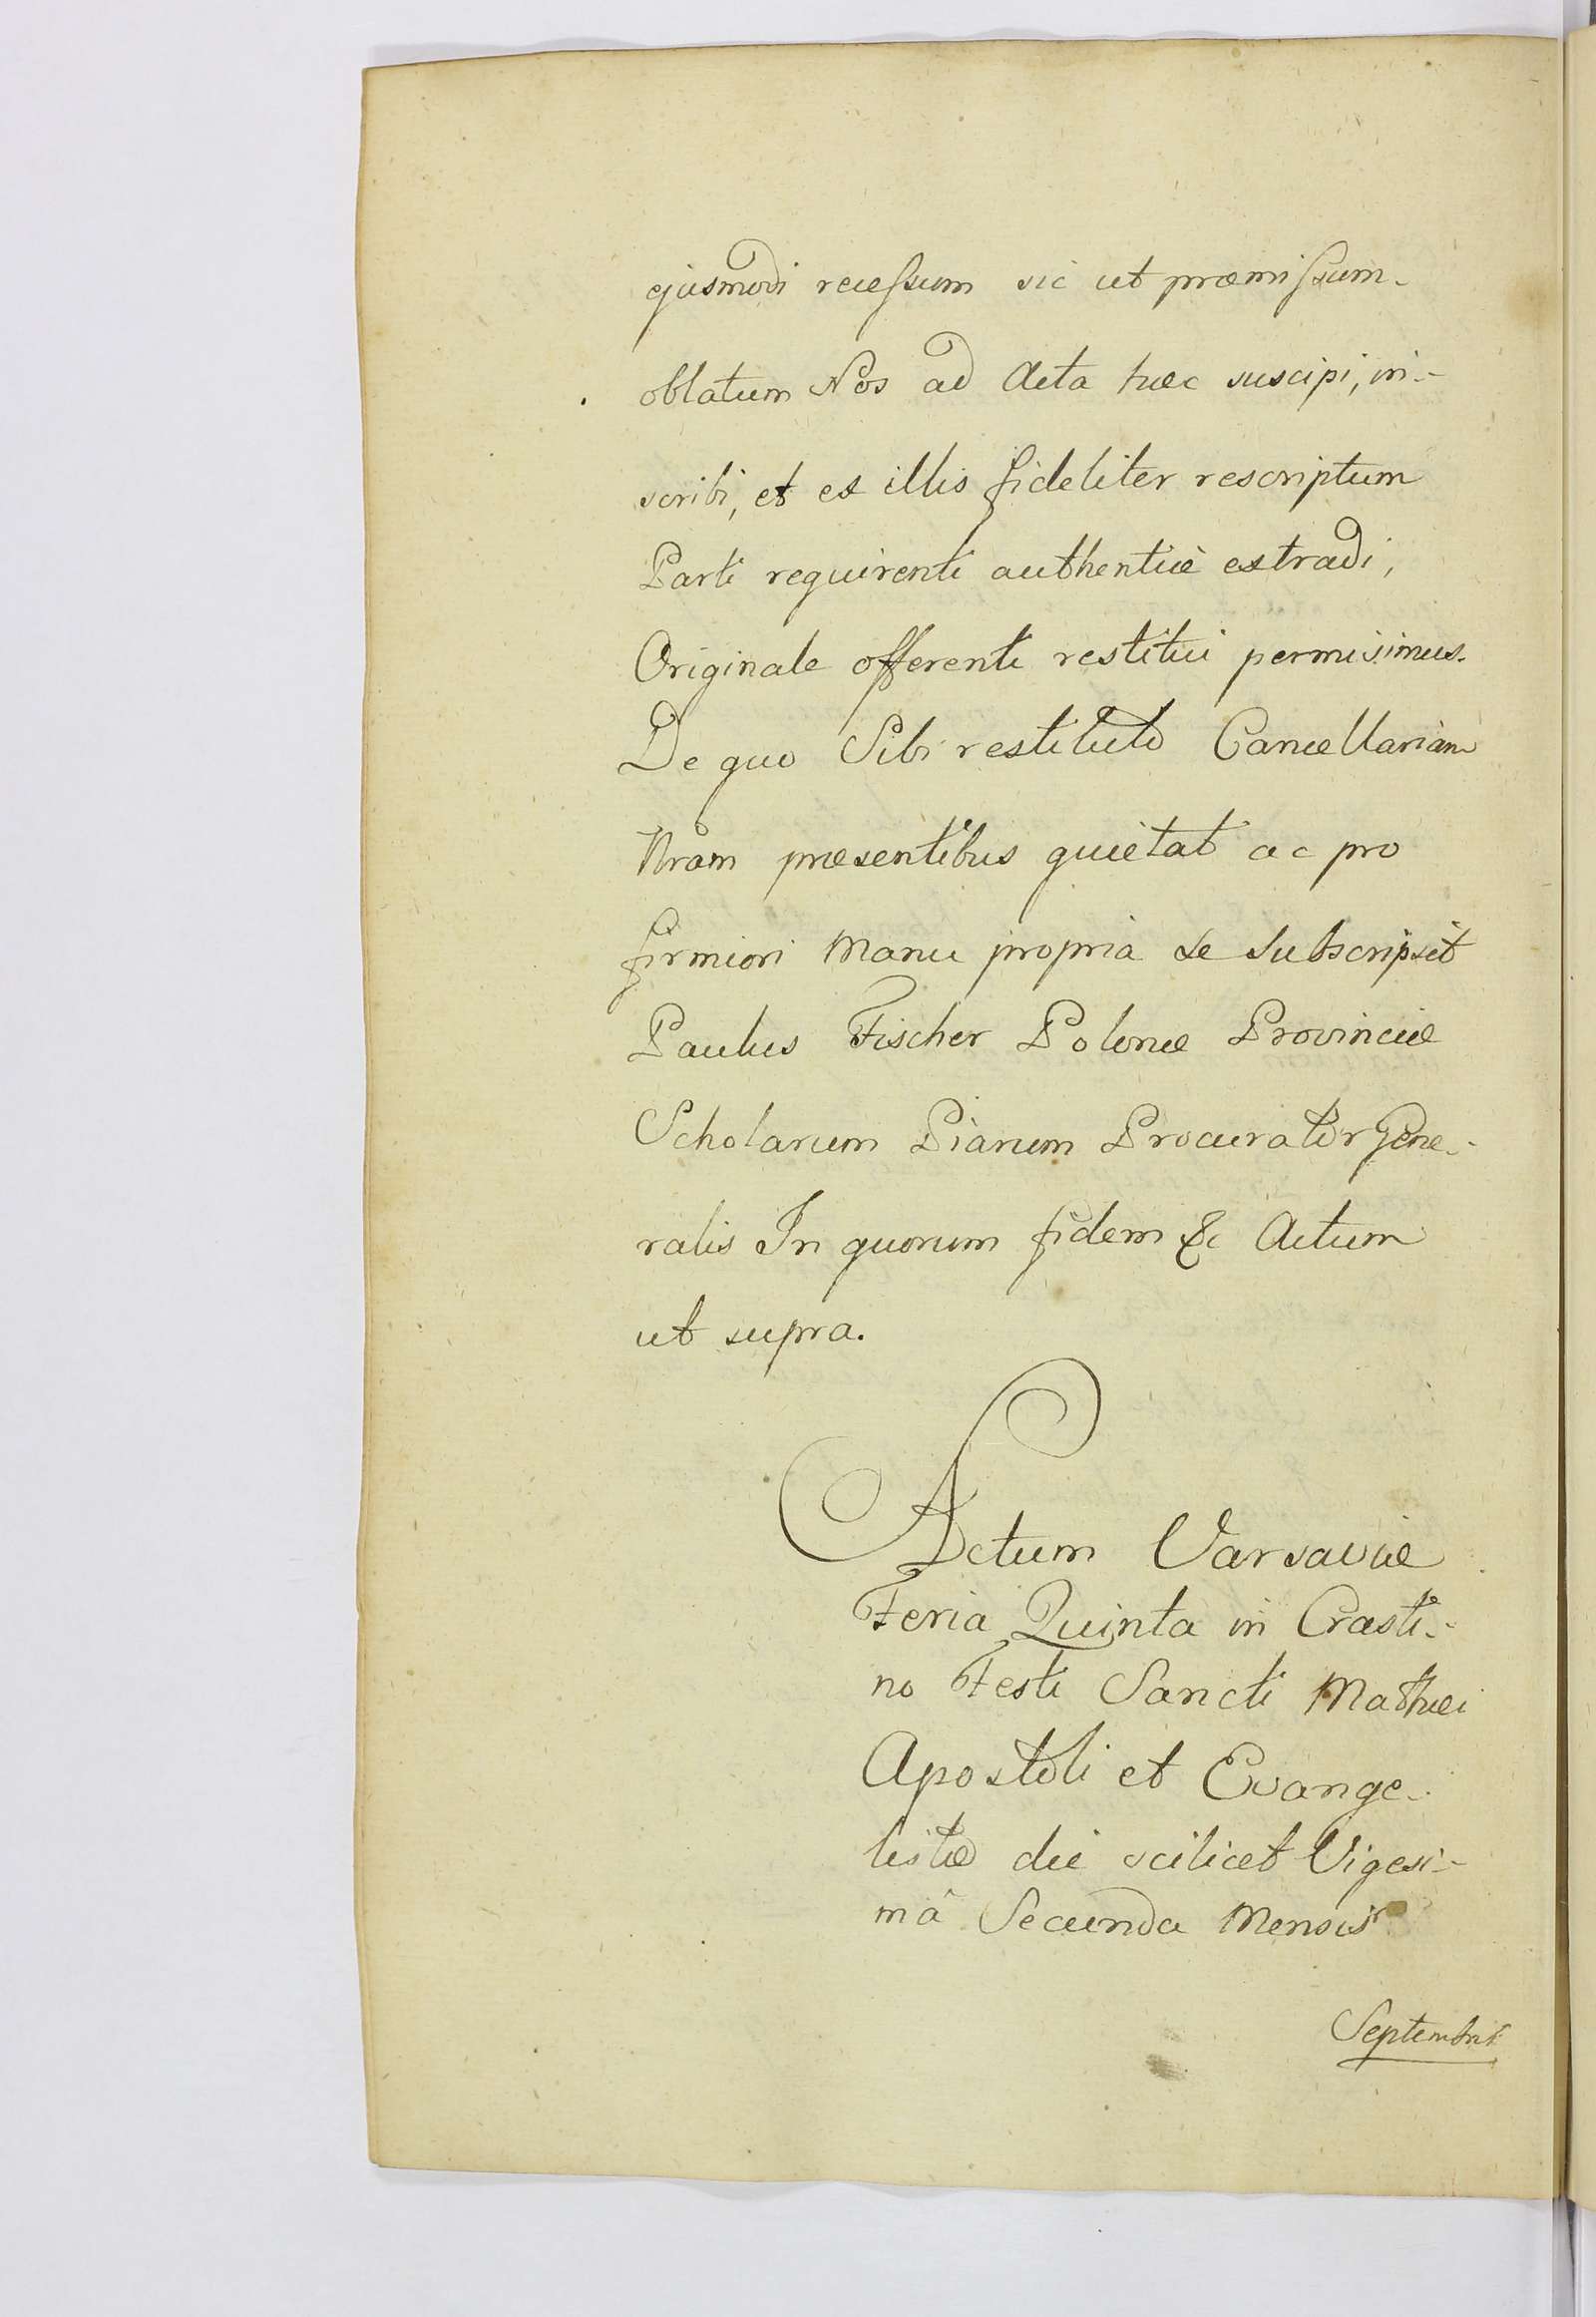 ejusmodi recessum sic ut præmissum
oblatum Nos ad Acta hæc suscipi, in-
scribi, et ex illis fideliter rescriptum
Parti requirenti authenticè extradi,
Originale offerenti restitui permisimus.
De quo Sibi restituto Cancellariam
Nram præsentibus quietat ac pro
firmiori Manu propria se Subscripsit
Paulus Fischer Polonæ Provinciæ
Scholarum Piarum Procurator Gene-
ralis In quorum fidem &c Actum
ut supra.
Actum Varsaviæ
Feria Quinta in Crasti-
no Festi Sancti Mathæi
Apostoli et Evange-
listæ die scilicet Vigesi-
mâ Secunda Mensis
Septembris